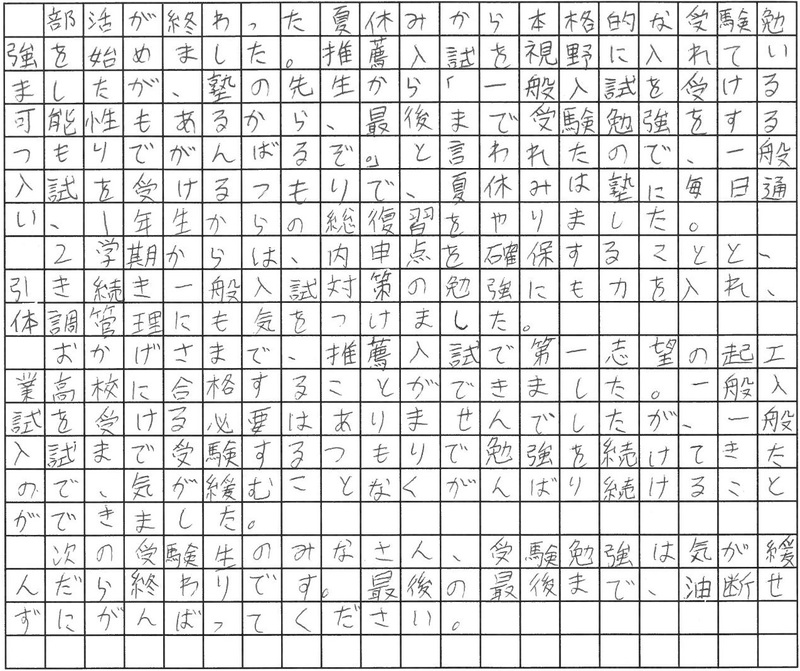 部活が終わった夏休みから本格的な受験勉
強を始めました。推薦入試を視野に入れてい
ましたが、塾の先生から「一般入試を受ける
可能性もあるから、最後まで受験勉強をする
つもりでがんばるぞ。」と言われたので、一般
入試を受けるつもりで、夏休みは塾に毎日通
い、1年生からの総復習をやりました。
2学期からは、内申点を確保することと、
引き続き一般入試対策の勉強にも力を入れ、
体調管理にも気をつけました。
おかげさまで、推薦入試で第一志望の起工
業高校に合格することができました。一般入
試を受ける必要はありませんでしたが、一般
入試まで受験するつもりで勉強を続けてきた
ので、気が緩むことなくがんばり続けること
ができました。
次の受験生のみなさん、受験勉強は気が緩
んだら終わりです。最後の最後まで、油断せ
ずにがんばってください。